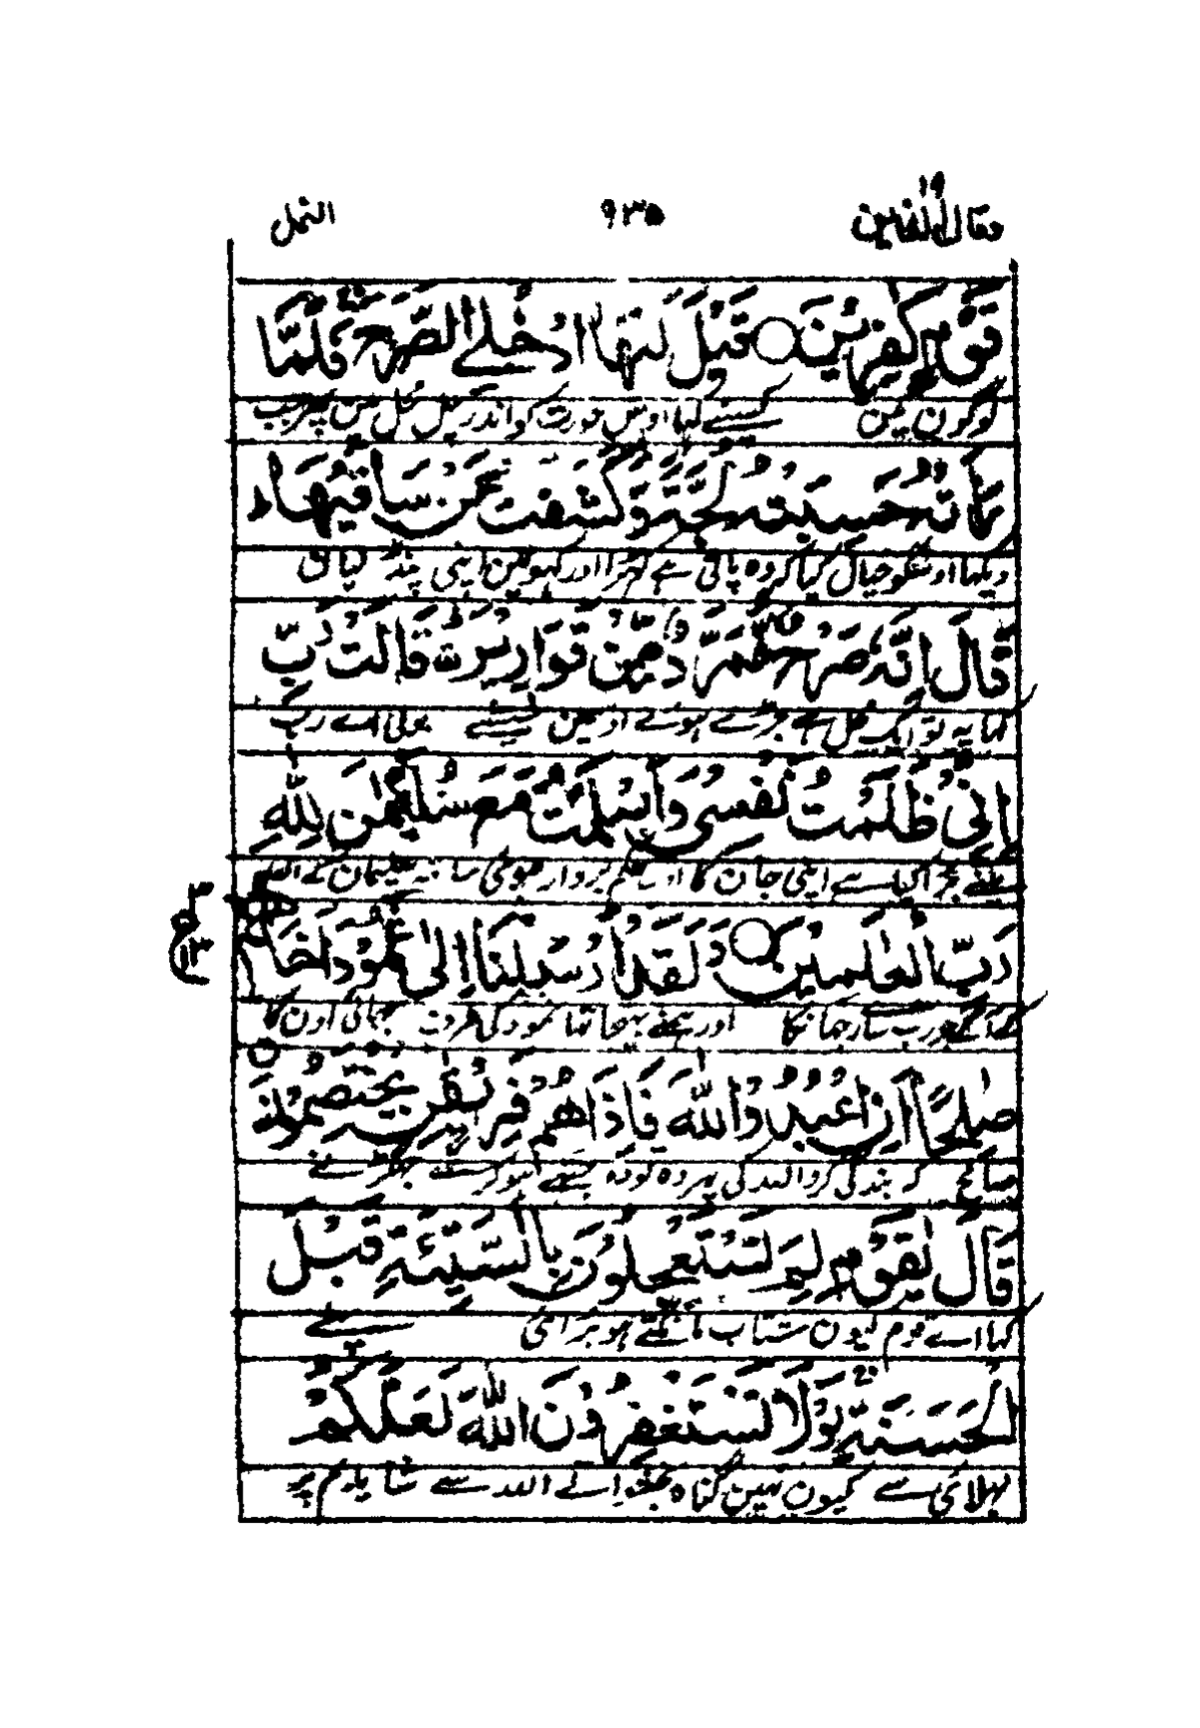 وقال الذين ١٩
٩٣٥
النمل
قَوْمٍ كٰفِرِيْنَ ○ قِيْلَ لَهَا ادْخُلِي الصَّرْحَ ۚ فَلَمَّا
لوگون مین کسینے کہا اوس عورت کو اندر چل محل مین پھر جب
رَاَتْهُ حَسِبَتْهُ لُجَّةً وَّكَشَفَتْ عَنْ سَاقَيْهَا ۭ
دیکہا اوسکو خیال کیا کہ وہ پانی ہے گہرا اور کہولین اپنی پنڈلیان
قَالَ اِنَّهٗ صَرْحٌ مُّمَرَّدٌ مِّنْ قَوَارِيْرَ ۬ ط قَالَتْ رَبِّ
کہا یہ تو ایک محل ہے جڑے ہوئے اوسمین شیشے بولی اے رب
اِنِّيْ ظَلَمْتُ نَفْسِيْ وَاَسْلَمْتُ مَعَ سُلَيْمٰنَ لِلّٰهِ
مینے برا کیا ہے اپنی جان کا اور حکم بردار ہوئی ساتہ سلیمان کے اللہ
رَبِّ الْعٰلَمِيْنَ ○ وَلَقَدْ اَرْسَلْنَآ اِلٰى ثَمُوْدَ اَخَاهُمْ
کے آگے جو رب سارے جہانکا اور ہمنے بہیجا تہا ثمود کی طرف بہائی اون کا
٣ ع ١٣
صٰلِحًا اَنِ اعْبُدُوا اللّٰهَ فَاِذَا هُمْ فَرِيْقٰنِ يَخْتَصِمُوْنَ
صالح کہ بندگی کرو اللہ کی پہر وہ تو دو جتہے ہو کر لگے جہگڑنے
قَالَ يٰقَوْمِ لِمَ تَسْتَعْجِلُوْنَ بِالسَّيِّئَةِ قَبْلَ
کہا اے قوم کیون شتاب مانگتے ہو برائی پہلے
الْحَسَنَةِ ۚ لَوْلَا تَسْتَغْفِرُوْنَ اللّٰهَ لَعَلَّكُمْ
بہلائی سے کیون نہین گناہ بخشواتے اللہ سے شاید تم پر